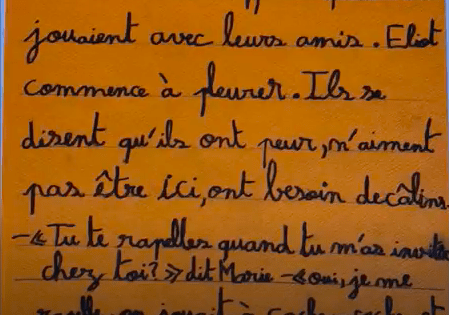 jouaient avec leurs amis. Eliot
commence à pleurer. Ils se
disent qu'ils ont peur, n'aiment
pas être ici, ont besoin de câlins.
-« Tu te rapelles quand tu m'as invitée
chez toi? » dit Marie -« oui, je me
on jouait à cache cache et